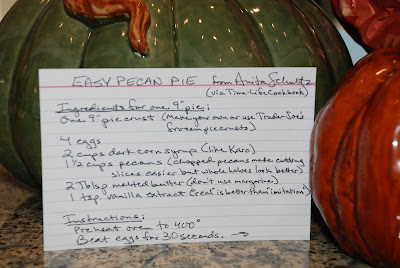 EASY PECAN PIE from Anita Schultz
(via Time-Life Cookbook)
Ingredients for one 9" pie:
One 9" pie crust (Make your own or use Trader Joe's
frozen pie crusts)
4 eggs
2 cups dark corn syrup (like Karo)
1 1/2 cups pecans (chopped pecans make cutting
slices easier but whole halves look better)
2 Tblsp melted butter (don't use margarine)
1 tsp. vanilla extract ("real" is better than imitation)
Instructions:
Preheat oven to 400°
Beat eggs for 30 seconds. →